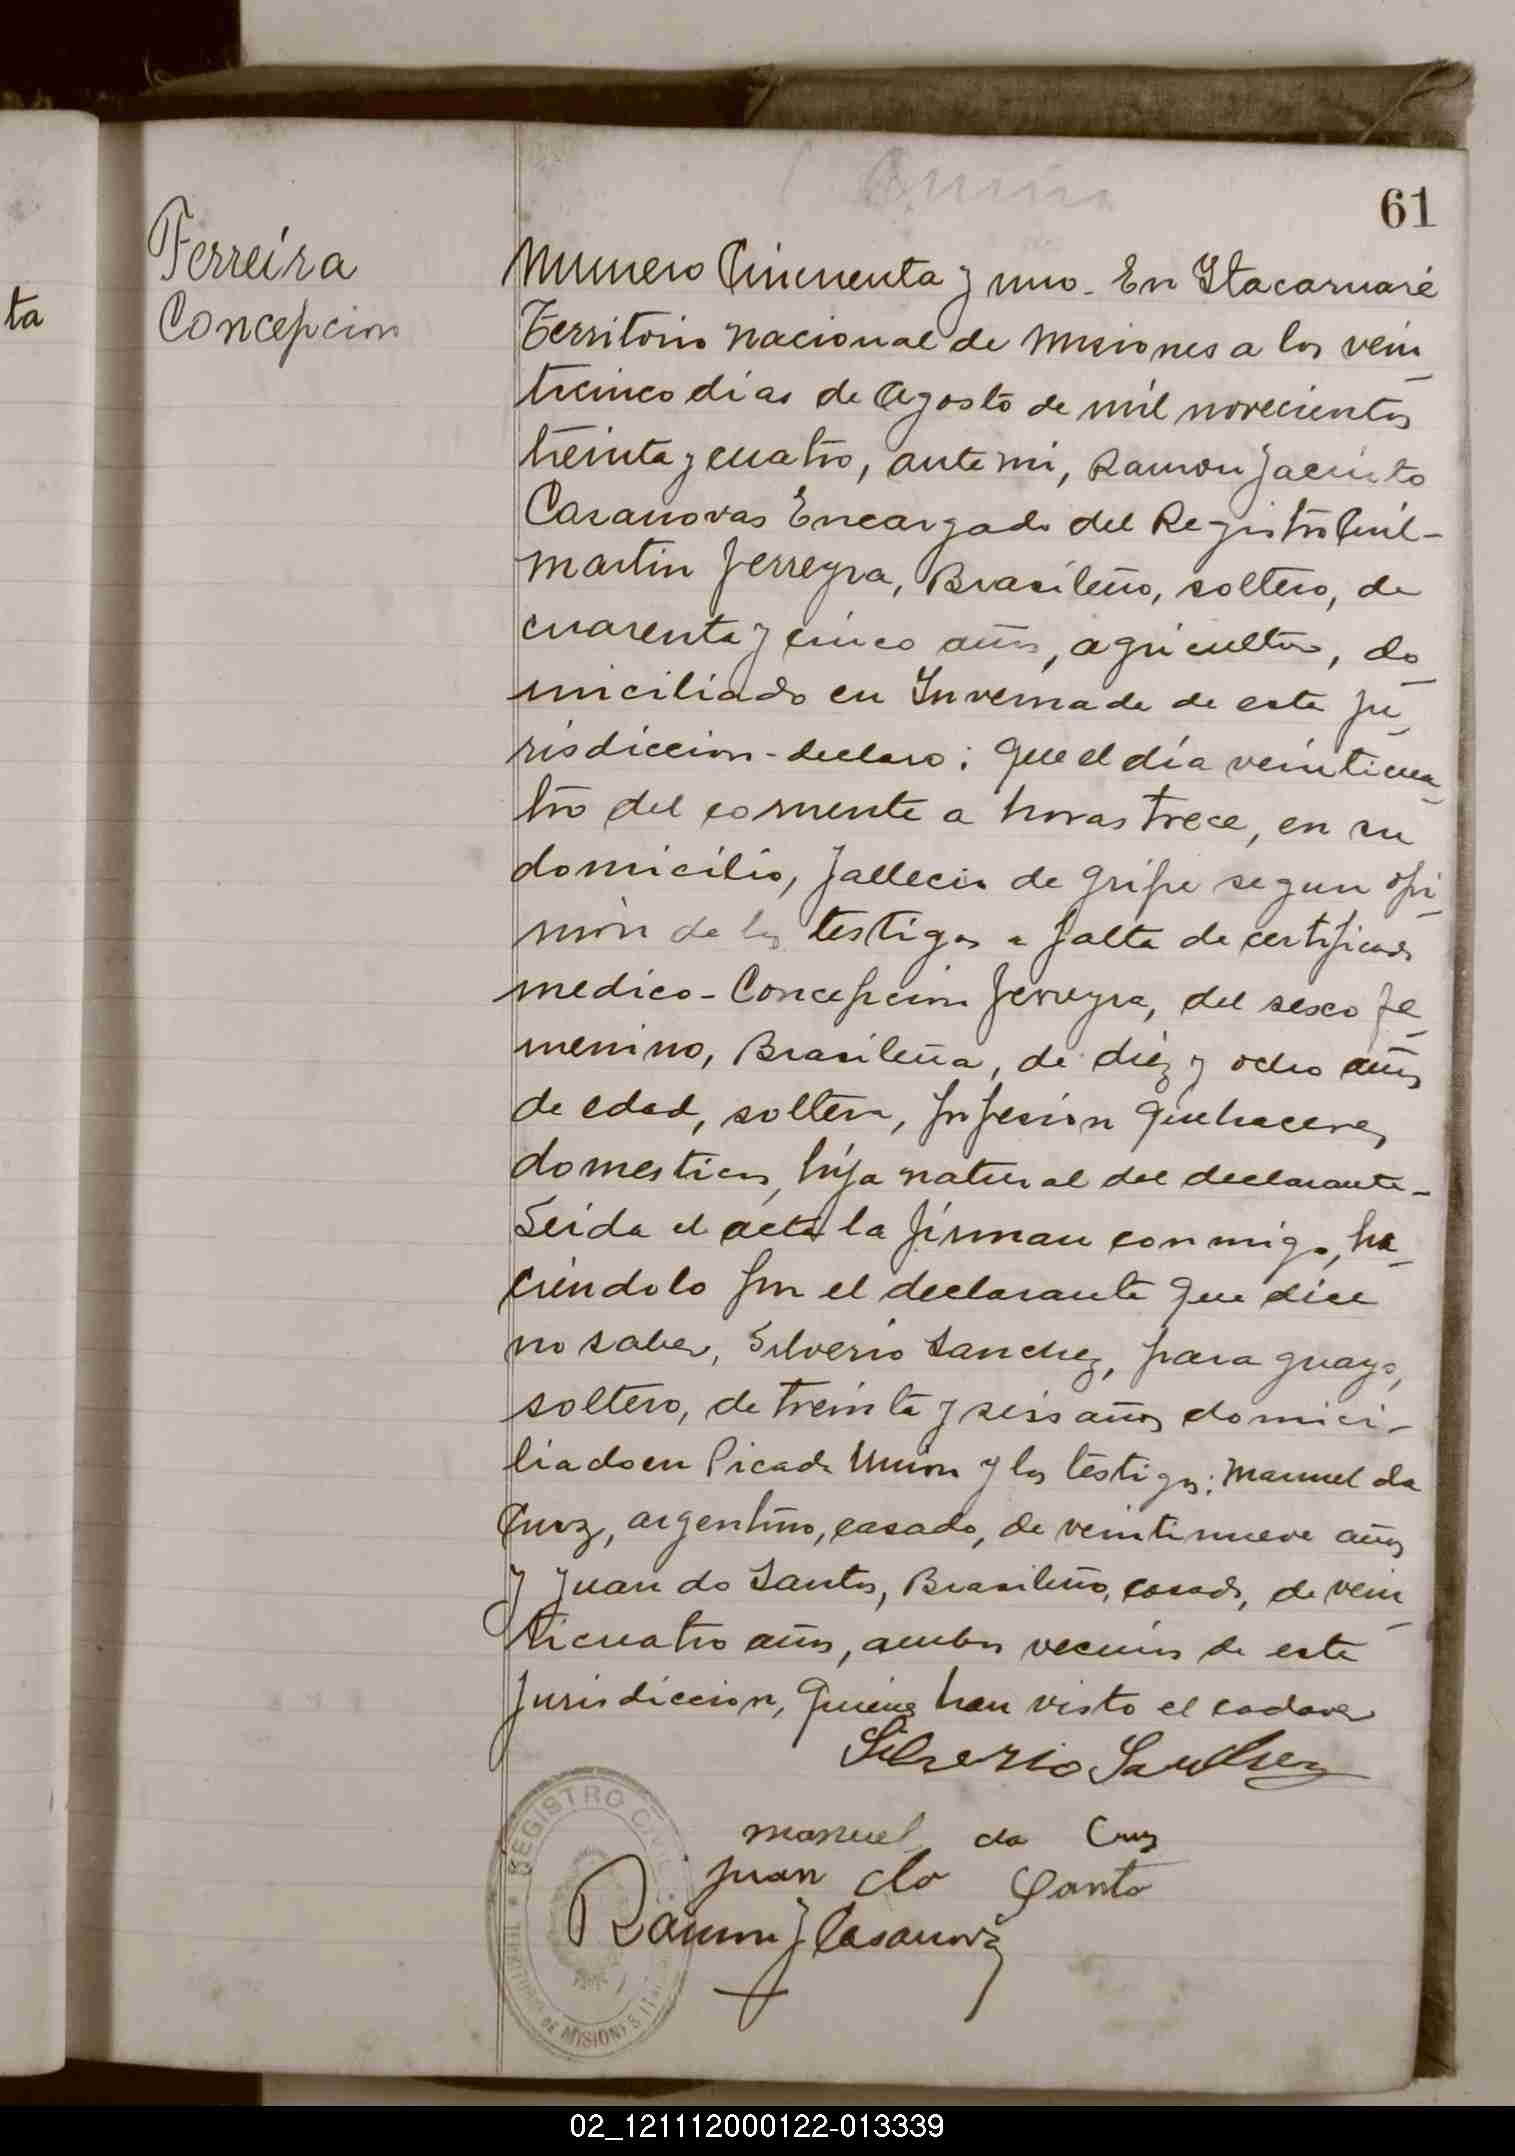 61
Ferreira
Concepcion
ta
Numero Cincuenta y uno. En Itacaruaré
Territorio Nacional de Misiones a los vein
ticinco dias de Agosto de mil novecientos
treinta y cuatro, ante mi, Ramon Jacinto
Casanovas Encargado del Registro Civil-
Martin Ferreyra, Brasileño, soltero, de
cuarenta y cinco años, agricultor, do
miciliado en Invernada de esta ju
risdiccion-declaro: Que el día veinticua
tro del corriente a horas trece, en su
domicilio, fallecio de gripe segun opi
nion de los testigos a falta de certificado
medico- Concepcion Ferreyra, del sexo fe
menino, Brasileña, de diez y ocho años
de edad, soltera, profesion quehaceres
domesticos, hija natural del declarante-
Leida el acta la firman conmigo, ha
ciendolo por el declarante que dice
no saber, Silverio Sanchez, paraguayo,
soltero, de treinta y seis años domici-
liado en Picada Union y los testigos: Manuel da
Cruz, argentino, casado, de veintinueve años
y Juan do Santos, Brasileño, casado, de vein
ticuatro años, ambos vecinos de esta
jurisdiccion, quienes han visto el cadaver
Silverio Sanchez
manuel da Cruz
juan do Santo
Ramon J Casanova
REGISTRO CIVIL
DE MISIONES
02_121112000122-013339